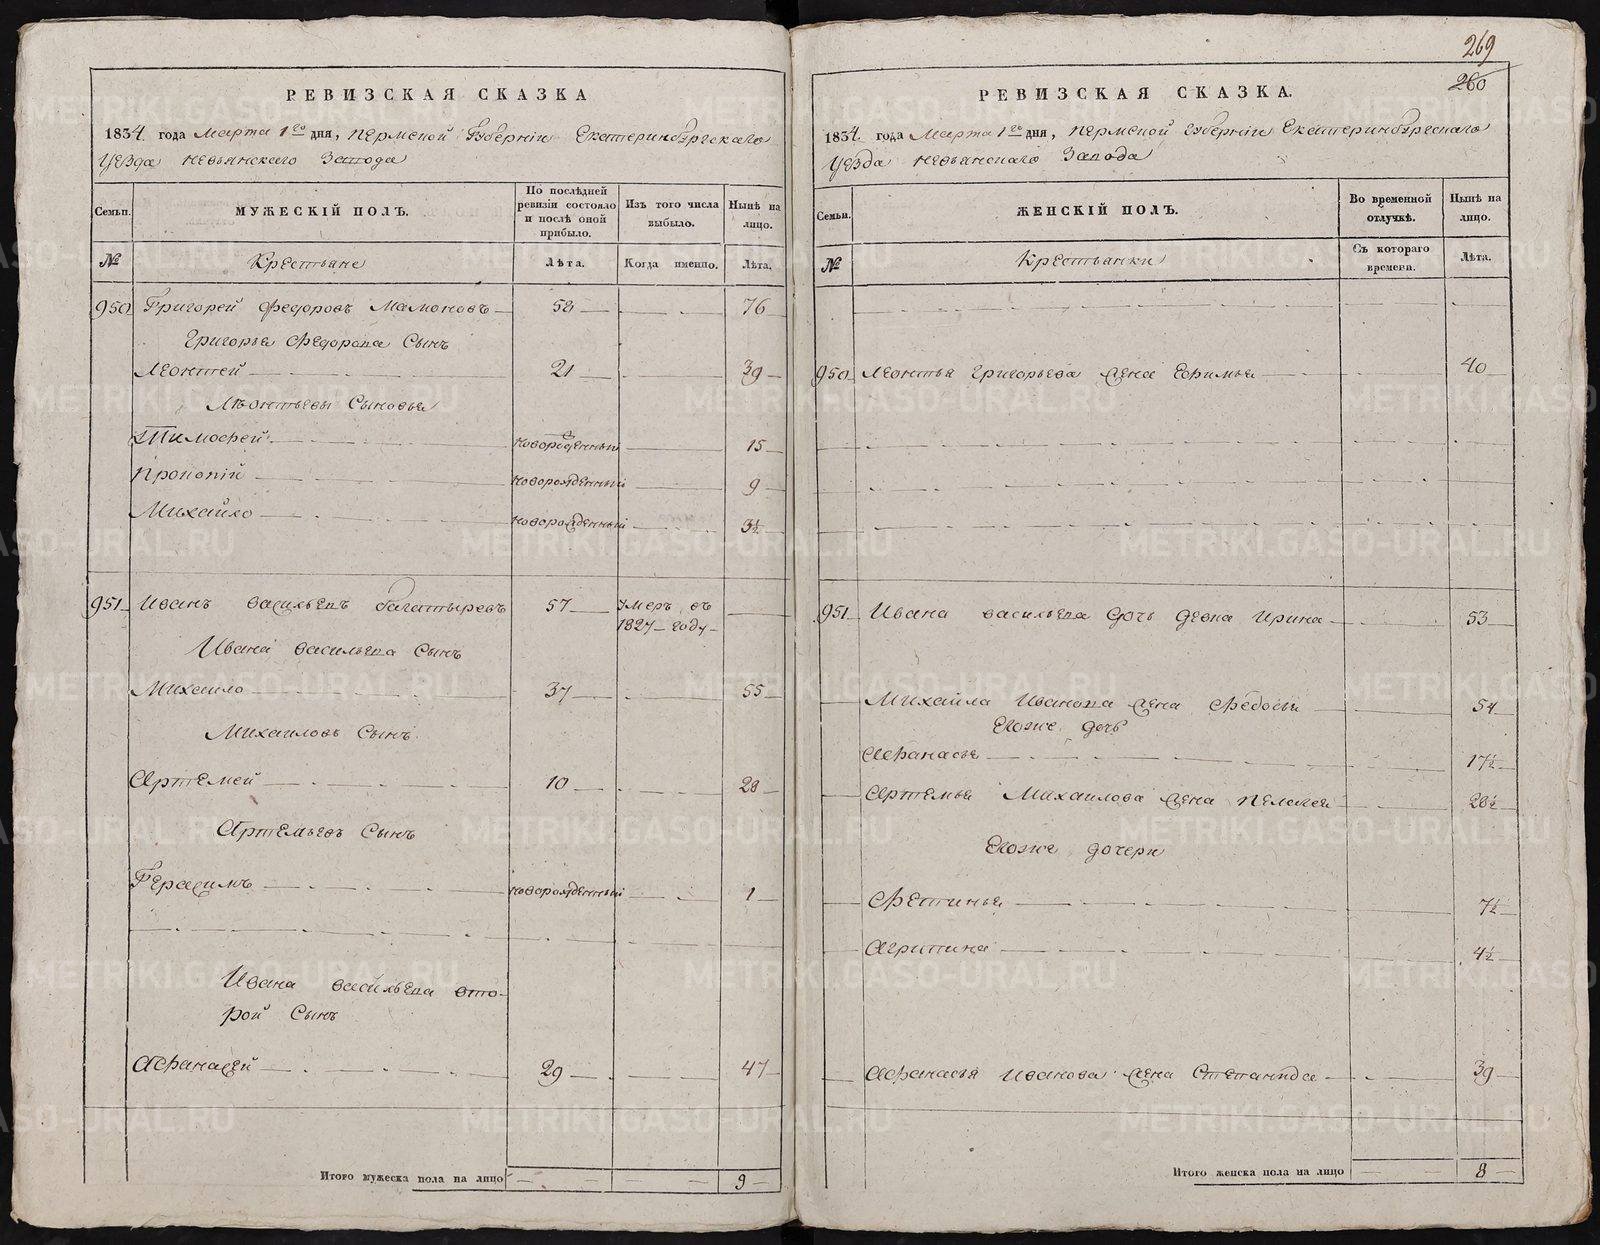 РЕВИЗСКАЯ СКАЗКА
1834. года Марта 1го дня, Пермской Губернiи Екатеринбургскаго
Уезда Невьянскаго Завода
Семьи. МУЖЕСКIЙ ПОЛЪ. По послѣдней ревизiи состояло и послѣ оной прибыло. Изъ того числа выбыло. Нынѣ на лицо.
№ Крестьяне Лѣта. Когда именно. Лѣта.
950 Григорей Федоровъ Мамоновъ 58 76
Григорья Федорова Сынъ
Леонтей 21 39
Леонтьевы Сыновья
1 Тимофей новорожденный 15
Прокопiй новорожденный 9
Михайло новорожденный 3½
951 Иванъ Васильевъ Багатыревъ 57 умеръ въ
1827 году
Ивана Васильева Сынъ
Михайло 37 55
Михаиловъ Сынъ
Артемей 10 28
Артемьевъ Сынъ
Герасимъ новорожденный 1
Ивана Васильева вто-
рой Сынъ
Афанасей 29 47
Итого мужеска пола на лицо 9
269
260
РЕВИЗСКАЯ СКАЗКА.
1834. года Марта 1го дня, Пермской Губернiи Екатеринбургскаго
Уезда Невьянскаго Завода
Семьи. ЖЕНСКIЙ ПОЛЪ. Во временной отлучкѣ. Нынѣ на лицо.
№ Крестьянки Съ котораго времени. Лѣта.
950 Леонтья Григорьева жена Ефимья 40
951 Ивана Васильева дочь девка Ирина 53
Михайла Иванова жена Федосья 54
Егоже дочь
Афанасья 17½
Артемья Михаилова жена Пелагея 28½
Егоже дочери
Фетинья 7½
Агрипина 4½
Афанасья Иванова жена Степанида 39
Итого женска пола на лицо 8
METRIKI.GASO-URAL.RU